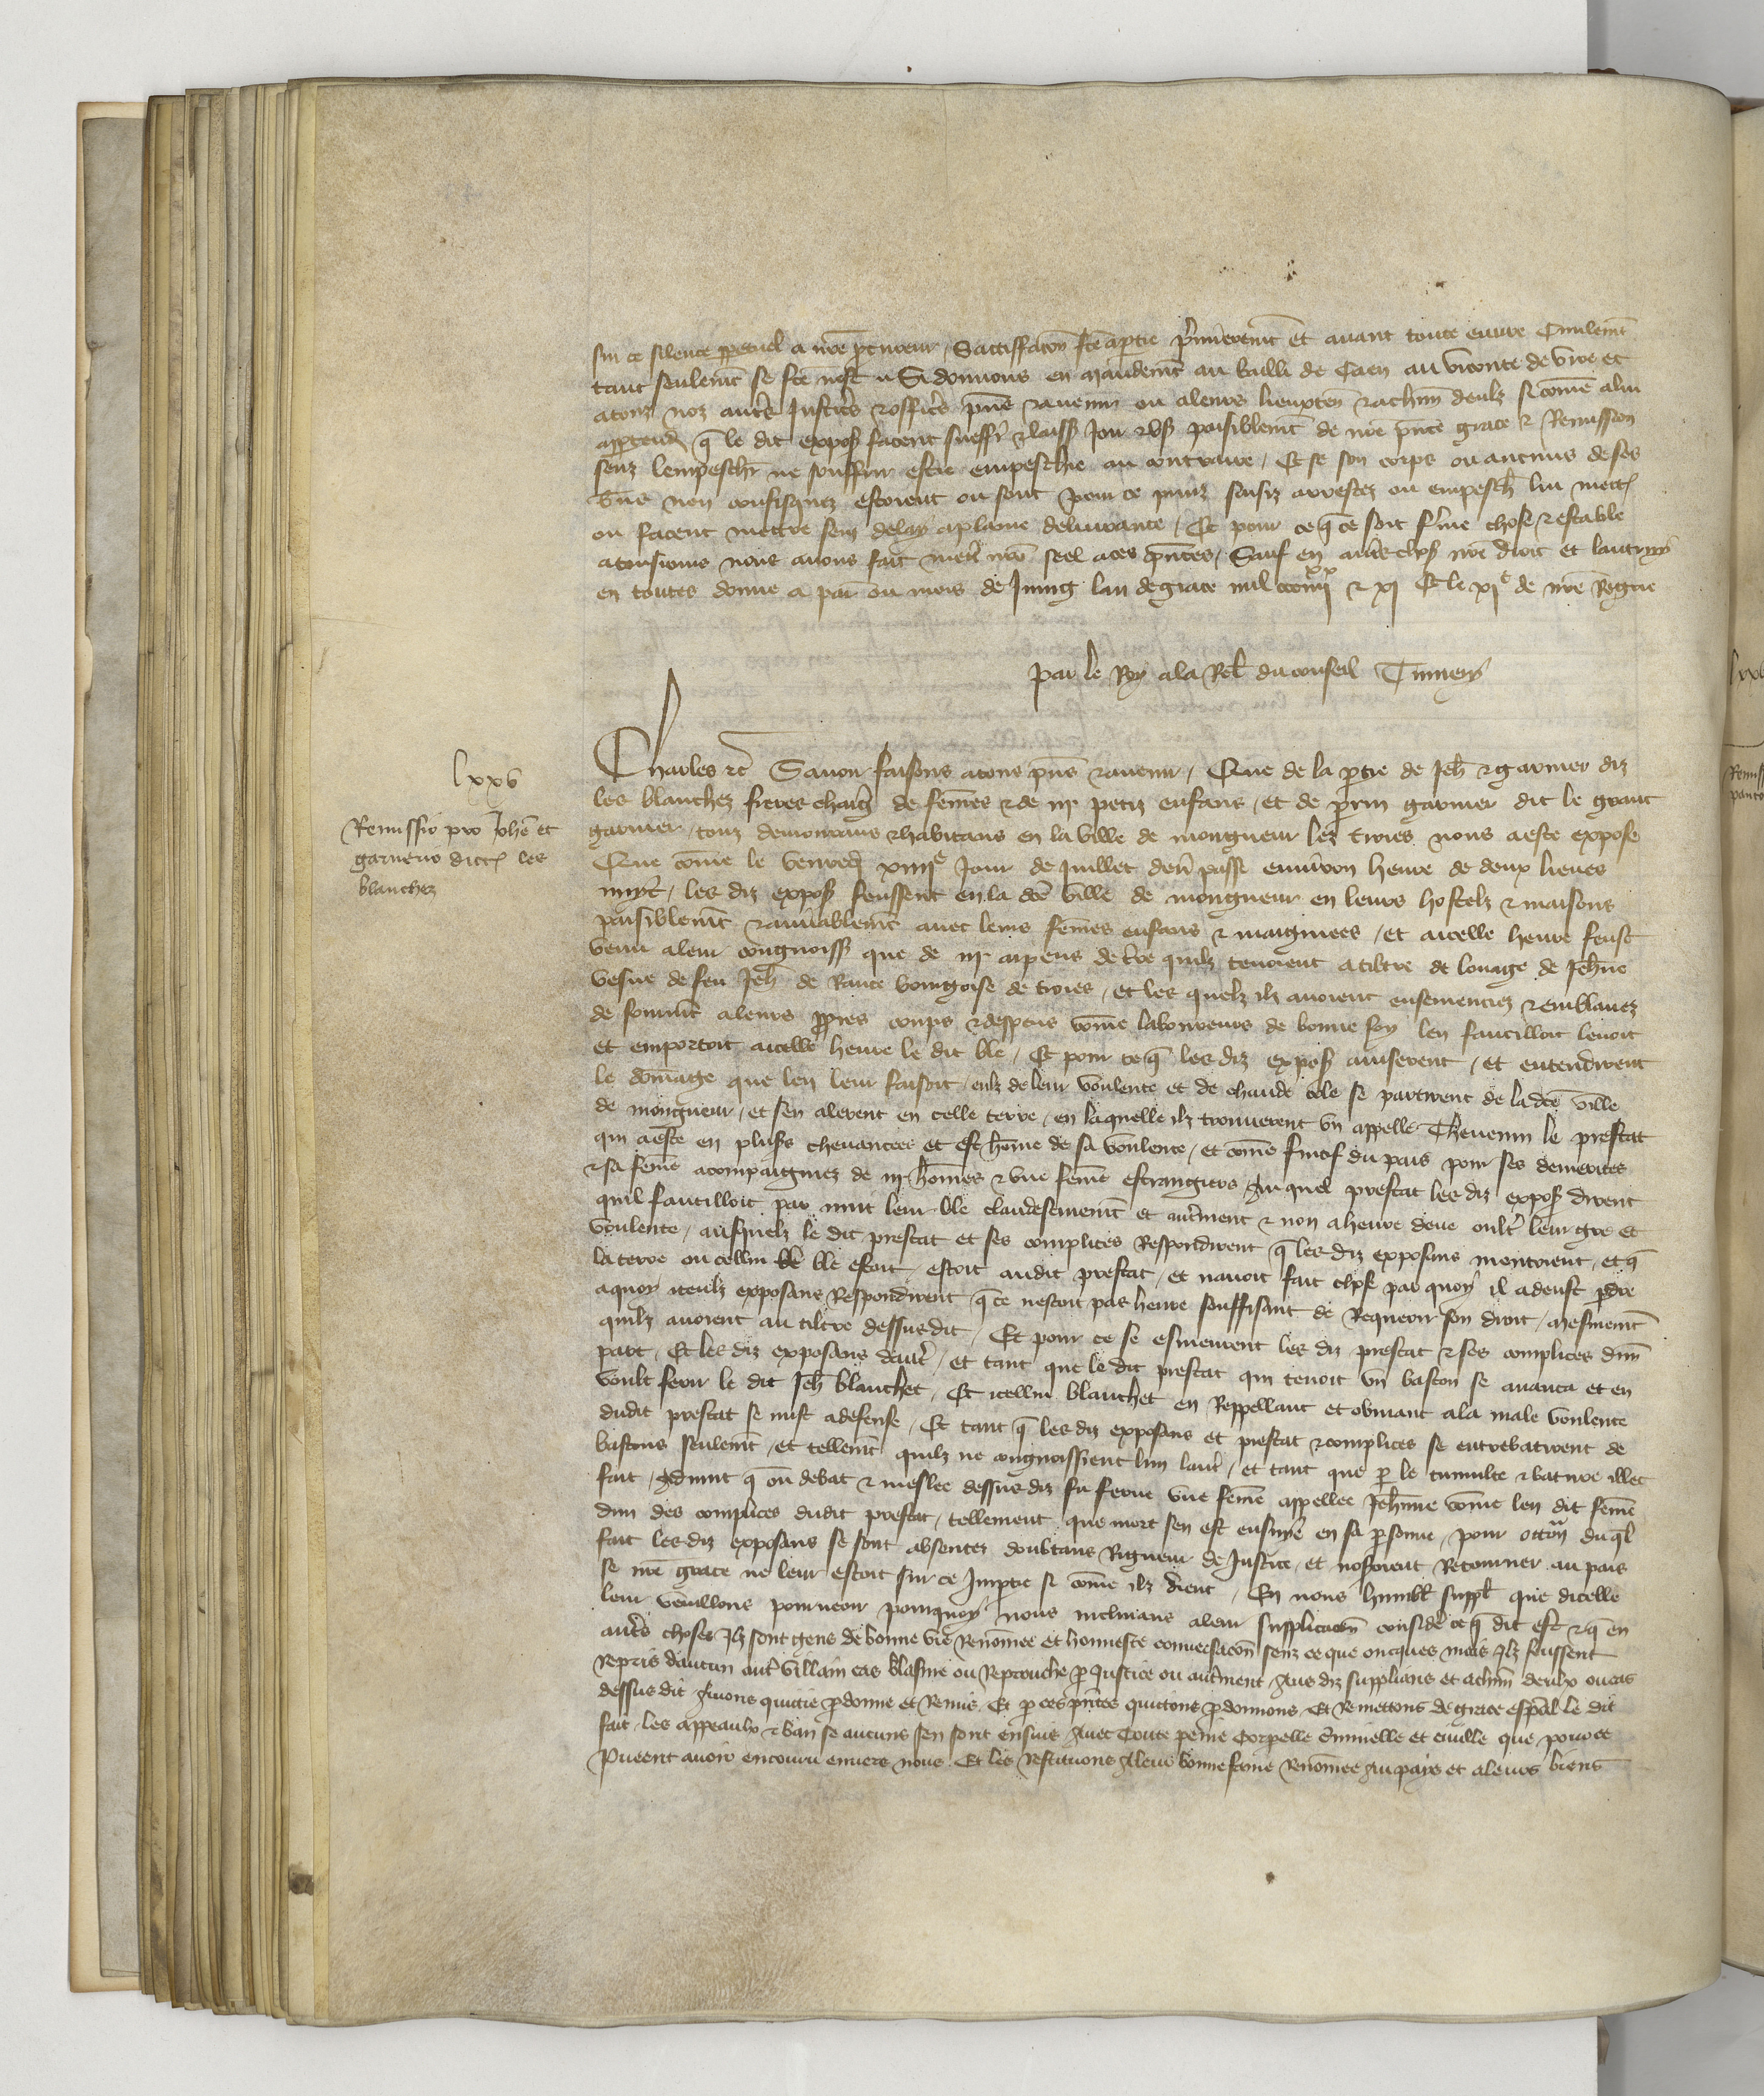 sur ce silence ppetuel a nre pcureur / Sattisfacon fce a ptie pmierement et avant toute euvre Civilemt
tant seulemt se fce nest // Si donnons en mandemt au bailli de Caen au viconte de vire et
a touz noz autres Justices & offices pns & avenir ou a leurs lieuxten & a chun deulz si come a lui
apptend q le dit expos facent sueffr & laiss Joir & us paisiblemt de nre pnte grace & Remission
senz lempescher ne souffrir estre empeschie au contraire / Et se son corps ou aucuns de ses
biens non confisquez estoient ou sont pour ce prins saisiz arrestez ou empesch lui mett
ou facent mettre senz delay a plaine delivrance / Et pour ce q ce soit ferme chose & estable
a tousiours nous avons fait mett nre seel a ces pntes / Sauf en autres choses nre droit et lautruy
en toutes donne a paris ou mois de Juing lan de grace mil ccc iiii xx & xi Et le xi e de nre Regne
Par le Roy a la Rel du conseil Tumery
lxxv
Remissio pro Johe et
garnerio dictis les
blanchez
Charles etc Savoir faisons a tous pns & avenir / Que de la ptie de Jeh & garnier diz
les blanchez freres chargez de femes & de iii petiz enfans / et de perrin garnier dit le grant
garnier / touz demourans & habitans en la ville de mongueur lez troies nous a este expose
Que come le venredi xiiii e Jour de Juillet derr passe environ heure de deux lieues
nuyt / les diz expos feussent en la dce ville de mongueur en leurs hostelz & maisons
paisiblemt & amiablemt avec leurs femes enfans & maignees / et a icelle heure feust
venu a leur congnoiss que de iii arpens de tre quilz tenoient a tiltre de louage de Jehne
vesve de feu Jeh de Rance bourgoise de troies / et les quelz ilz avoient ensemenciez & emblavez
de fromt a leurs ppres coups & despens come laboureurs de bonne foy len faucilloit levoit
et emportoit a icelle heure le dit ble / Et pour ce q les diz expos aviserent / et entendirent
le domage que len leur faisoit / eulz de leur voulente et de chaude cole se partirent de la dce ville
de mongueur / et sen alerent en celle terre / en laquelle ilz trouverent un appelle Thevenin le prestat
qui a este en plusrs chevauchees et est home de sa voulente / et come fuitif du pais pour ses demerites
& sa feme acompaigniez de iii homes & une feme estrangiers / Au quel prestat les diz expos dirent
quil faucilloit par nuit leur ble clandestinemt et autrement & non a heure deue oultr leur gre et
voulente / ausquelz le dit prestat et ses complices Respondirent q les diz exposans mentoient / et q
la terre ou cellui ble estoit / estoit audit prestat / et navoit fait chose par quoy il a deust pdre
a quoy iceulz exposans Respondirent q ce nestoit pas heure souffisant de Requerir son droit / mesmemt
quilz avoient au tiltre dessusdit / Et pour ce se esmeurent les diz prestat & ses complices dune
part / Et les diz exposans dautr / et tant que le dit prestat qui tenoit un baston se avanca et en
voult ferir le dit Jeh blanchet / Et icellui blanchet en Reppellant et obviant a la male voulente
dudit prestat se mist a defense / Et tant q les diz exposans et prestat & complices se entrebatirent de
bastons seulemt / et tellemt quilz ne congnoissient lun lautr / et tant que p le tumulte & bature illec
fait / Advint q ou debat & meslee dessus diz fu ferue une feme appellee Jehanne come len dit feme
dun des complices dudit prestat / tellement que mort sen est ensuye en sa psonne / pour occon duql
fait les diz exposans se sont absentez doubtans Rigueur de Justice / et nosoient Retourner au pais
se nre grace ne leur estoit sur ce Impartie si come ilz dient / En nous humblt suppl que dicelle
leur veuillons pourveoir pourquoy nous inclinans a leur supplicacon considere ce q dit est & q en
autres choses Ilz sont gens de bonne vie Renomee et honneste conversacon senz ce que oncques mais Ilz feussent
repris daucun autr villain cas blasme ou Reprouche p Justice ou autrement / Aus diz supplians et a chun deulx ou cas
dessus dit Avons quictie pdonne et Remis / Et p ces pntes quictons pdonnons Et Remettons de grace espal le dit
fait / les appeaulx & ban se aucuns sen sont ensuis Avec Toute peine Corpelle Criminelle et civille que pour ce
Pueent avoir encouru envers nous Et les restituons A leur bonne fame Renomee Au pays et a leurs biens